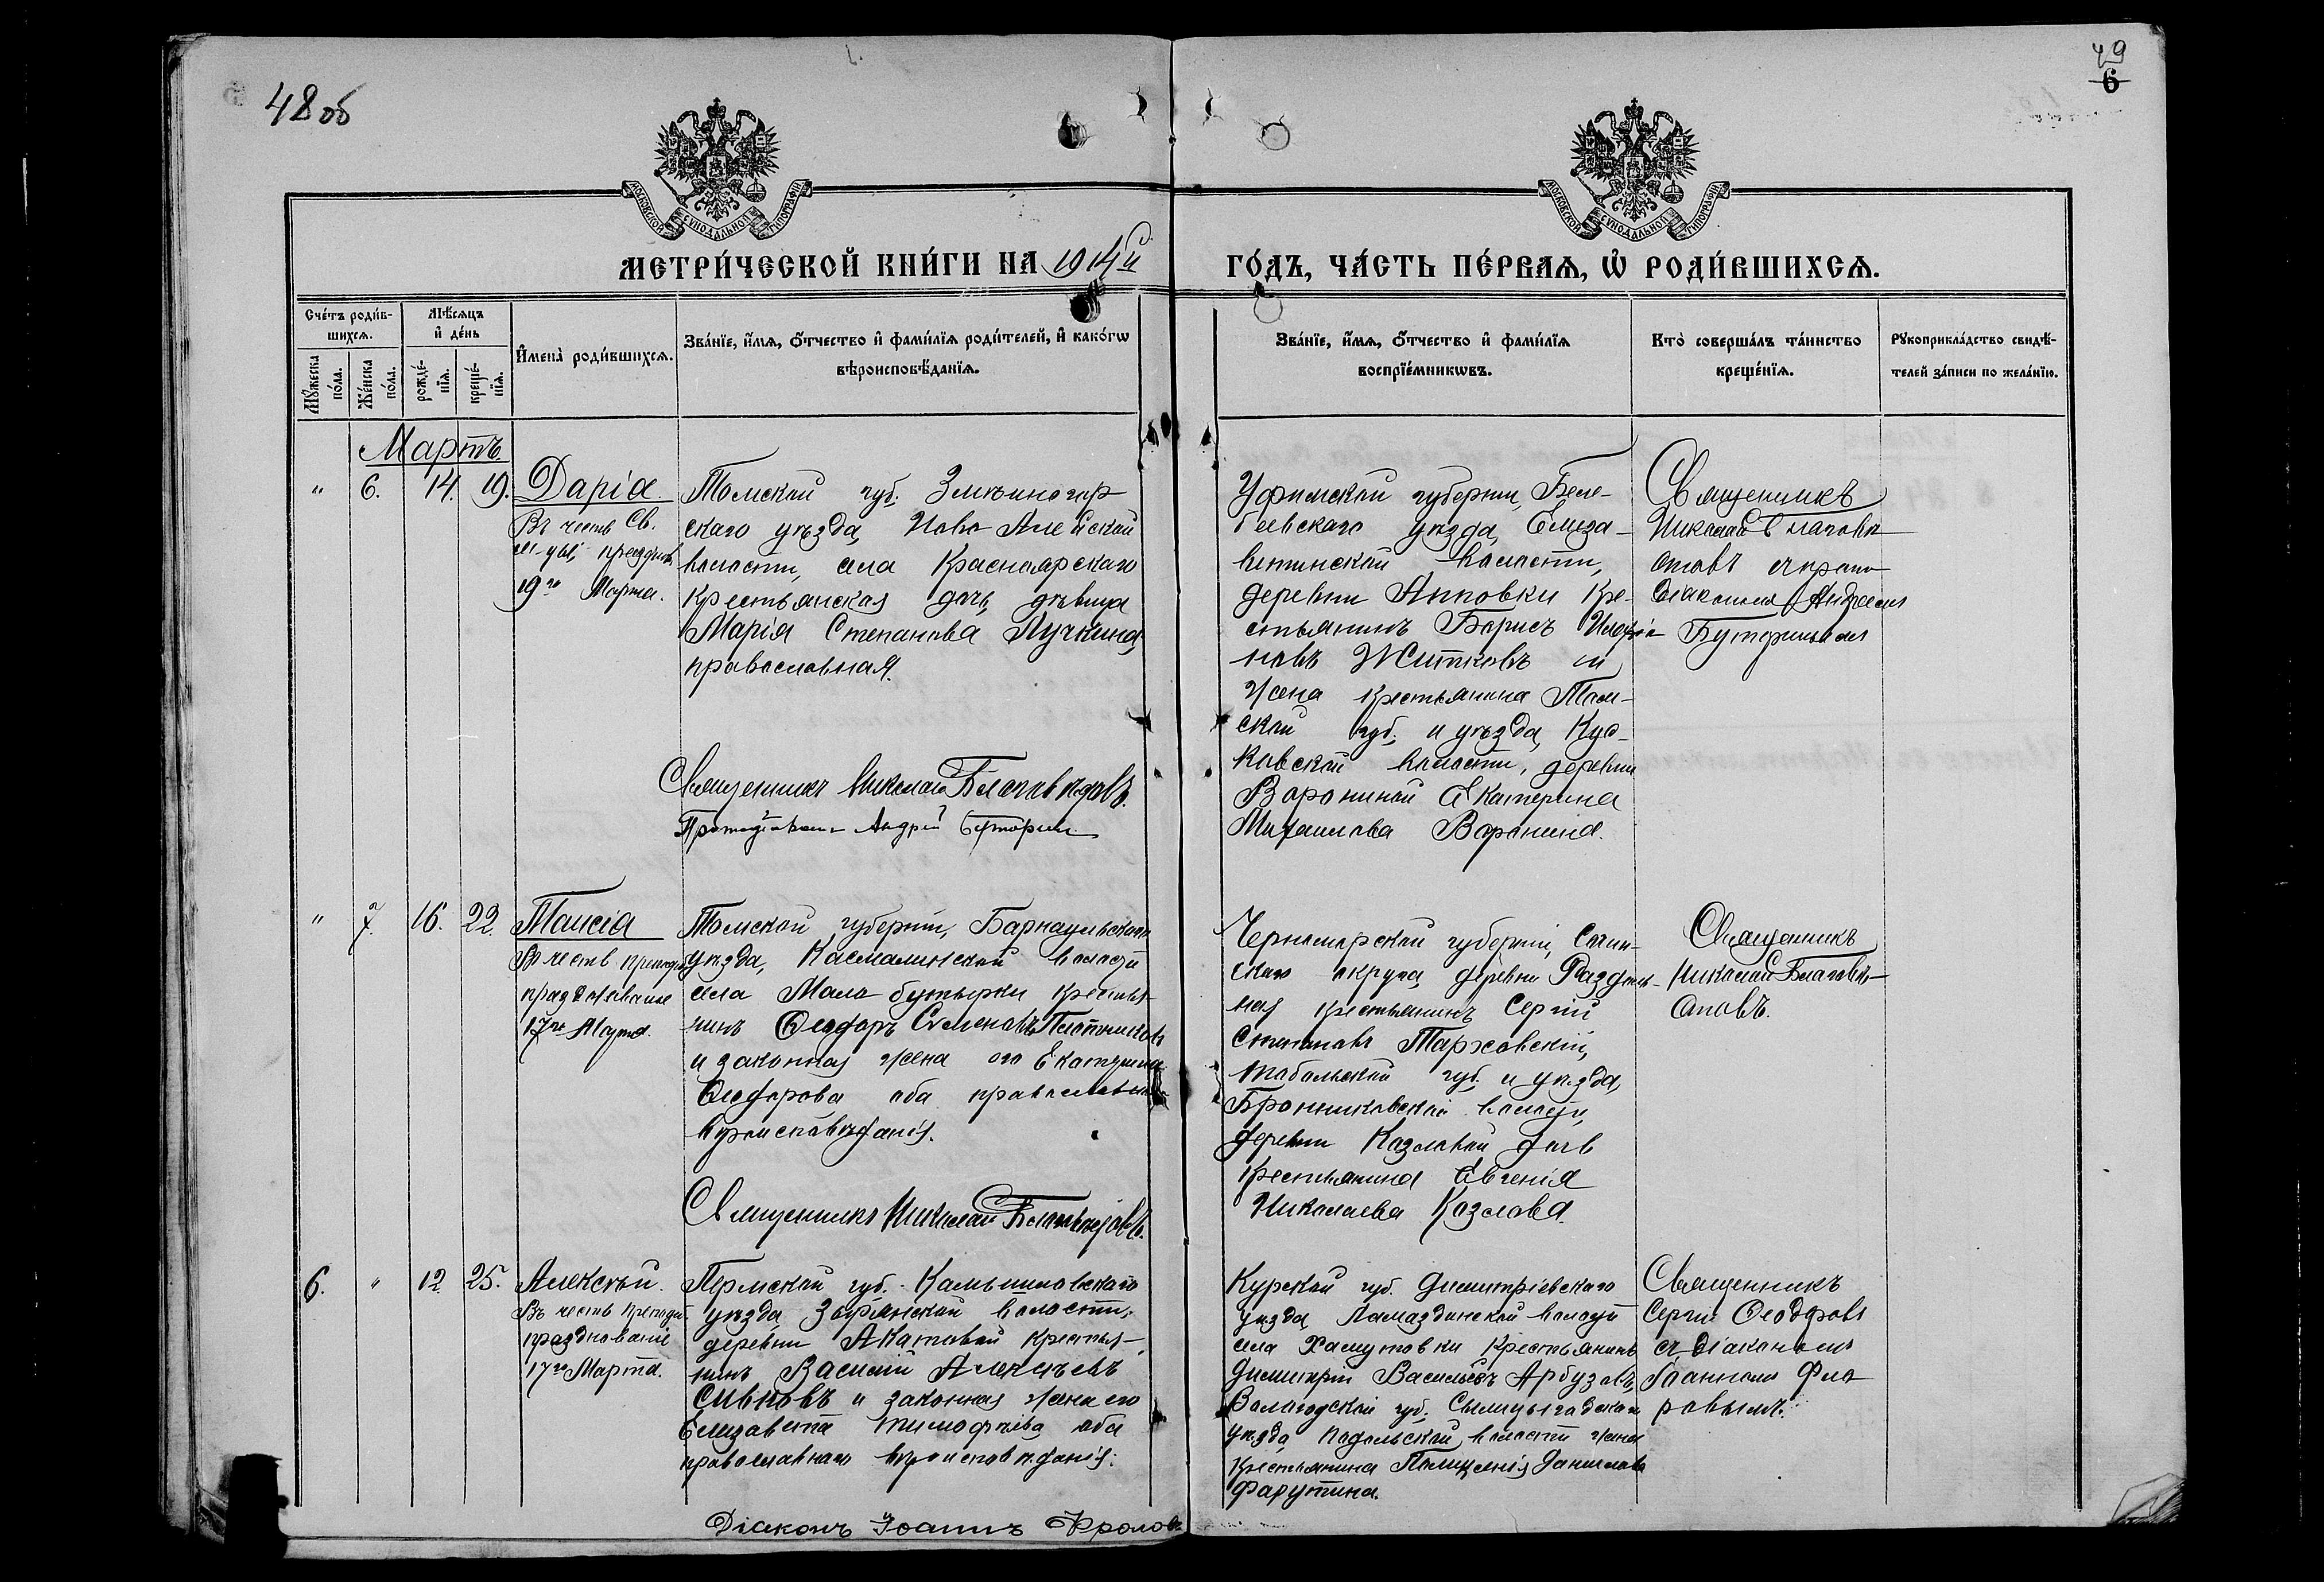 48 об
49
6
МОСКОВСКОЙ СѴНОДАЛЬНОЙ ТИПОГРАФІИ
МОСКОВСКОЙ СѴНОДАЛЬНОЙ ТИПОГРАФІИ
МЕТРИ́ЧЕСКОЙ КНИ́ГИ НА 1914й
ГО́ДЪ, ЧА́СТЬ ПЕ́РВАѦ, Ѡ҆ РОДИ́ВШИХСѦ.
Сче́тъ роди́в-
шихсѧ.
Мꙋ́жеска по́ла.
Же́нска по́ла.
Мѣ́сѧцъ
и҆ де́нь
рожде́-нїѧ.
креще́-нїѧ.
И҆мена̀ роди́вшихсѧ.
Зва́нїе, и҆́мѧ, ѻ҆́тчество и҆ фами́лїѧ роди́телей, и҆ како́гѡ
вѣроисповѣ́данїѧ.
Зва́нїе, и҆́мѧ, ѻ҆́тчество и҆ фами́лїѧ
воспрїе́мникѡвъ.
Кто̀ соверша́лъ та́инство
креще́нїѧ.
Рꙋкоприкла́дство свидѣ́-
телей за́писи по жела́нїю.
Мартъ.
" 6. 14. 19. Дарія
Въ честь Св.
м-цы, праздн.
19го Марта.
Томской губ. Змѣиногор-
скаго уѣзда, Ново Алейской
волости, села Красноярскаго
Крестьянская дочь, дѣвица
Марія Степанова Лучкина,
православная.
Священникъ Николай Благовѣдовъ.
Протодіаконъ Андрей Буторин
Уфимской губерніи, Беле-
беевскаго уѣзда, Елиза-
ветинской волости,
деревни Анповки Кре-
стьянинъ Борисъ
новъ Житковъ и
жена крестьянина Том-
ской губ. и уѣзда,
ковской волости, деревни
Ворониной Екатерина
Михаилова Воронина.
Священникъ
Николай
съ прото
Діакономъ Андреемъ
" 7. 16. 22. Таисія
Въ честь преподоб.
празднованіе
17го Марта.
Томской губерніи, Барнаульскаго
уѣзда, Касмалинской волости
села Мало бутырки крестья-
нинъ Ѳеодоръ Семеновъ Плотниковъ
и законная жена его Екатерина
Ѳеодорова оба православнаго
вѣроисповѣданія.
Священникъ Николай Благовѣдовъ.
Черноморской губерніи, Сочин-
скаго округа, деревни Раздоль-
ная крестьянинъ Сергій
Степановъ Тарховскій,
Тобольской губ. и уѣзда,
Бронниковской волости,
деревни Козловой дочь
крестьянина Евгенія
Николаева Козлова.
Священникъ
Николай
6. " 12. 25. Алексѣй.
Въ честь преподоб.
празднованіе
17го Марта.
Пермской губ. Камышловскаго
уѣзда волости,
деревни Акатовой крестья-
нинъ Василій Алексѣевъ
Сивковъ и законная жена его
Елизавета Тимофѣева оба
православнаго вѣроисповѣданія.
Діаконъ Іоаннъ Фроловъ
Курской губ. Димитріевскаго
уѣзда, волости
села Хомутовки Крестьянинъ
Димитрій Васильевъ Арбузовъ,
Вологодской губ.
уѣзда волости жена
крестьянина Данилова
Фарутина.
Священникъ
Сергій Ѳеодоровъ
съ Діакономъ
Іоанномъ Фло
ровымъ.